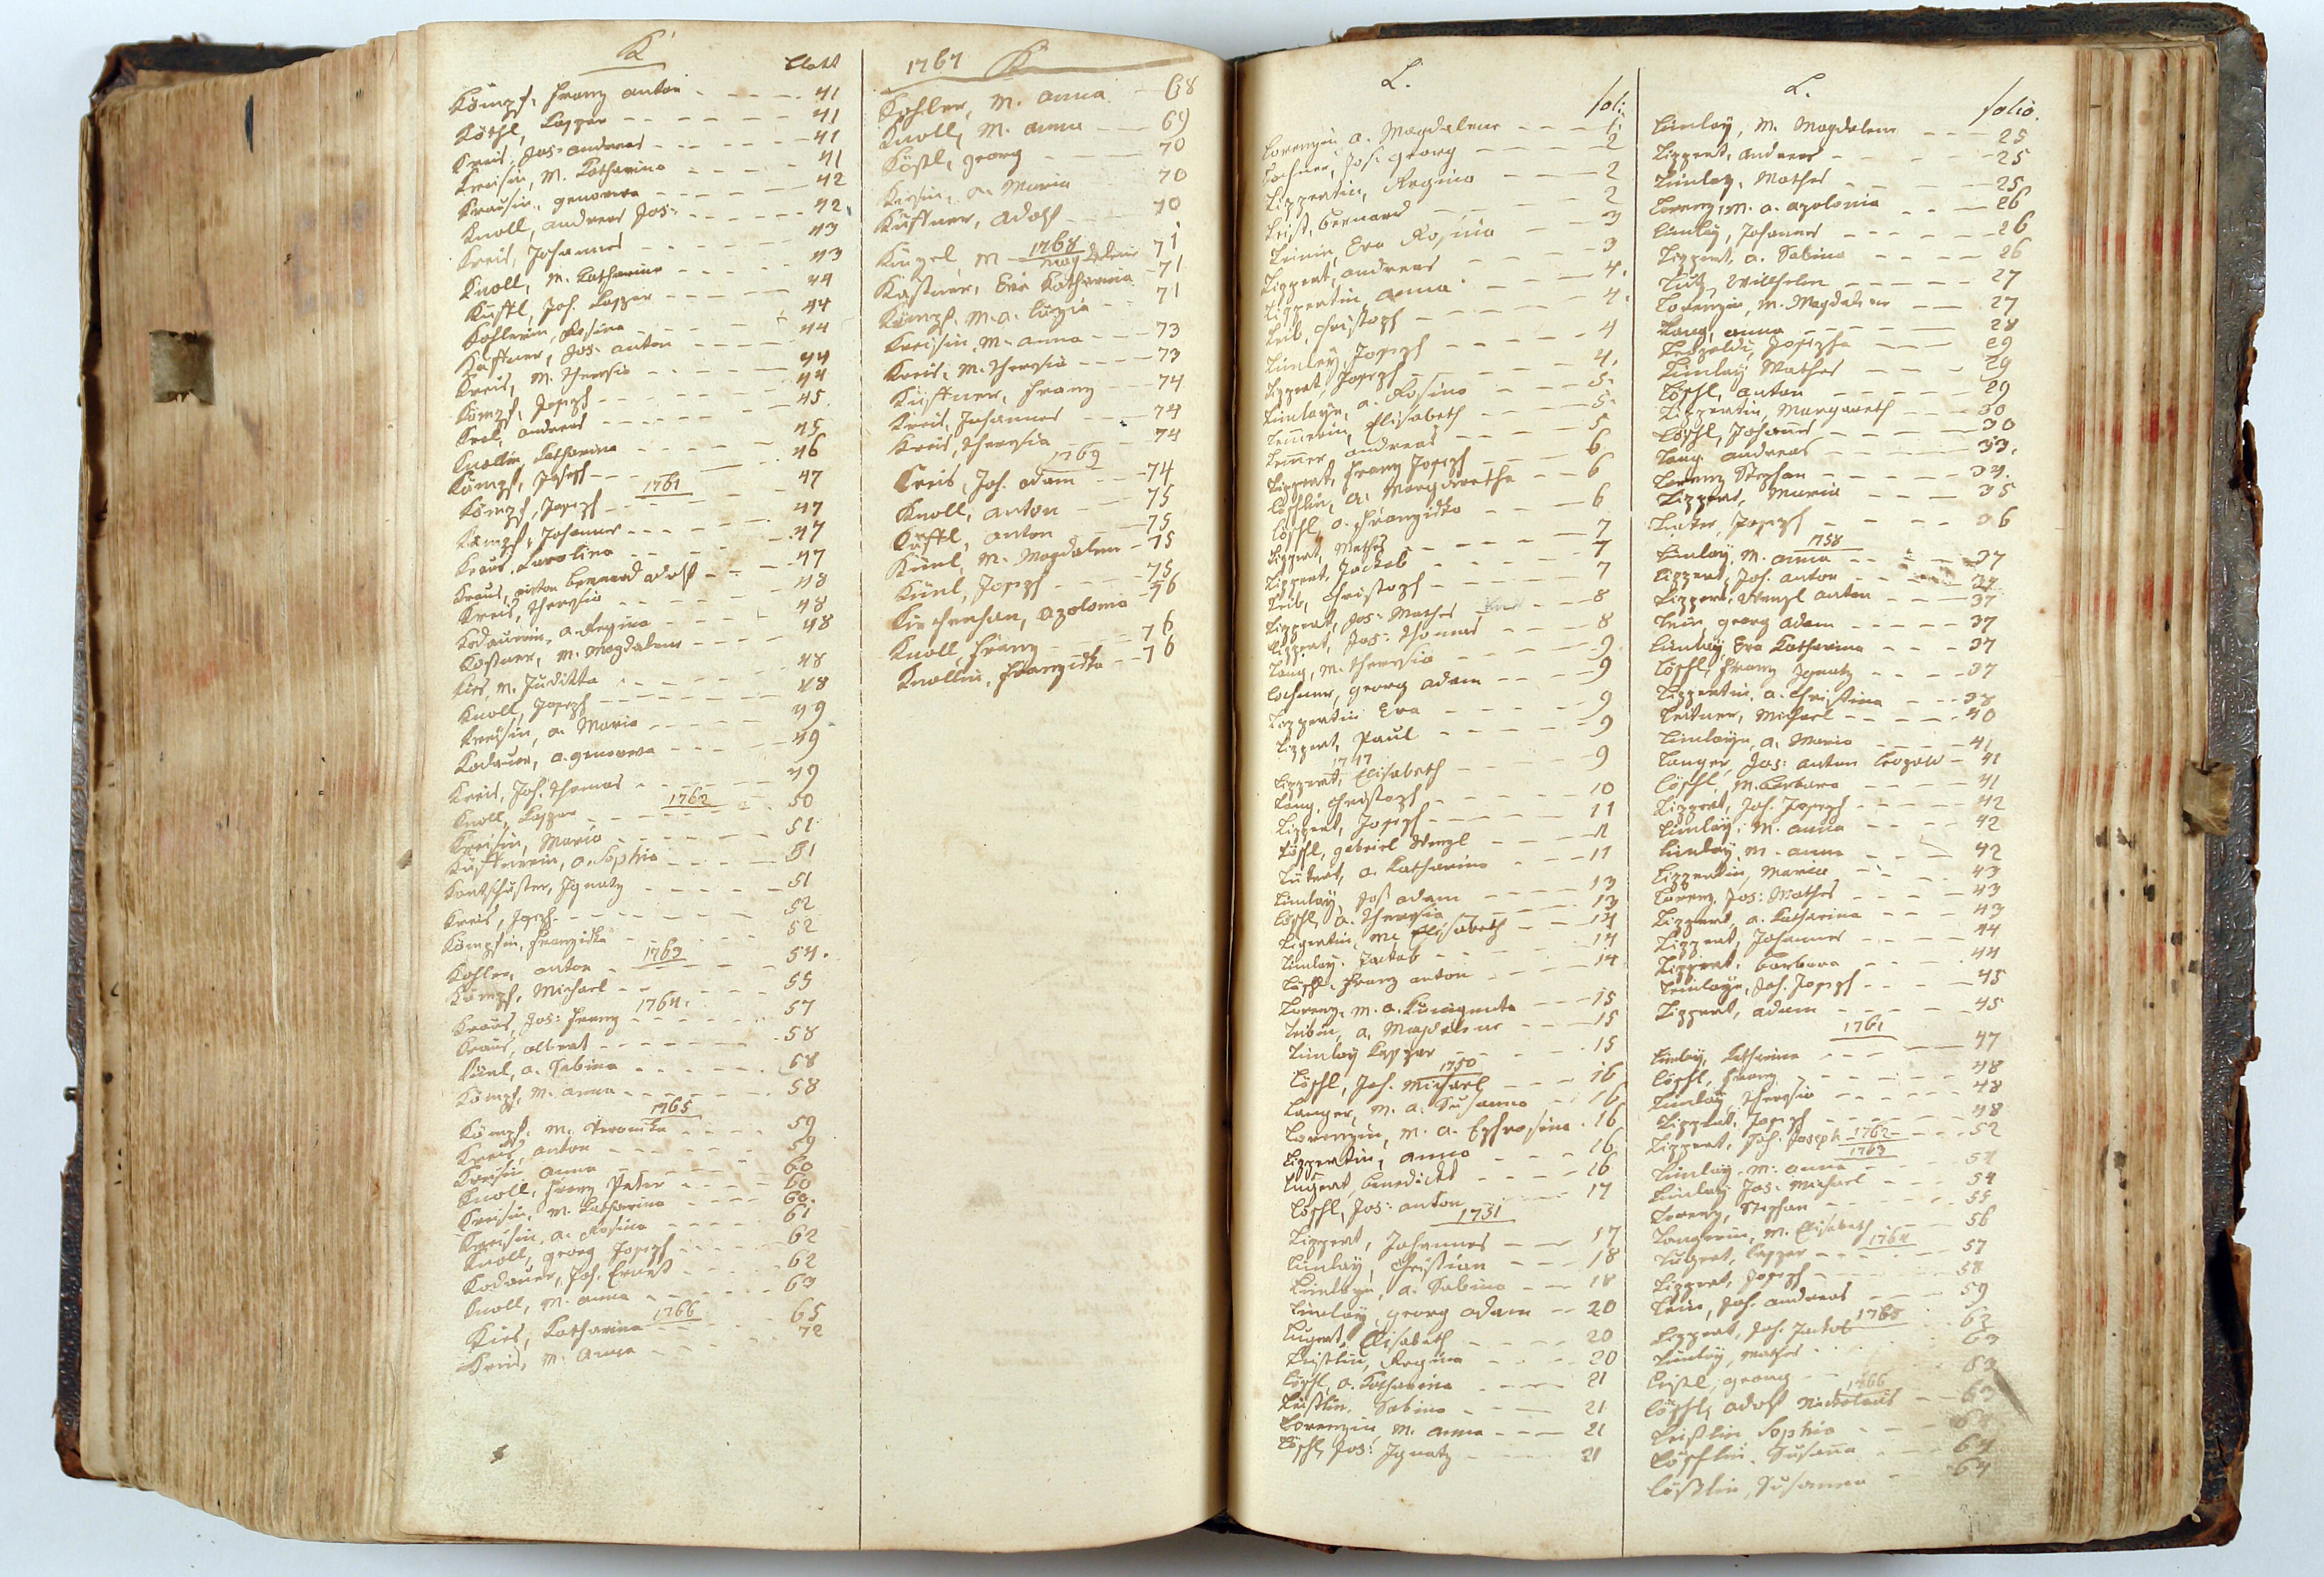 K
Blatt
Kömpf, Franz Anton - - - - 41
Köschl, Caspar - - - - - 41
Kreis, Jos: Andreas - - - - - 41
Kreisin, M. Catharina - - - - 41
Krausin, Genovera - - - - - 42
Knoll, Andreas Jos: - - - - - 42
Kreis, Johannes - - - - - 43
Knoll, M. Catharina - - - - 43
Küffl, Joh. Caspar - - - - - 44
Kohlerin, Rosina - - - - - 44
Küffner, Jos: Anton - - - - 44
Kreis, M. Theresia - - - - - 44
Kömpf, Joseph - - - - - 44
Andreas - - - - - 45
Knollin, Catharina - - - - 45
Kömpf, Joseph - - - - 46
1761
Kömpf, Joseph - - - - 47
Kömpf, Johannes - - - - 47
Kraus, Carolina - - - - 47
Kraus, Anton Bernard Adolf - - 47
Kreis, Theresia - - - - - 48
Kodauerin, A. Regina - - - - 48
Kostner, M. Magdalena - - - - 48
Kies, M. Juditta - - - - 48
Knoll, Joseph - - - - - 48
Kreisin, A. Maria - - - - - 49
Kodauer, A. Genovera - - - 49
Kreis, Joh. Thomas - - - - 49
1762
Knoll, Caspar - - - - 50
Kreisin, Maria - - - - - 51
Küffnerin, A. Sophia - - - - 51
Kortschuster, Ignatz - - - - 51
Kreis, Joseph - - - - - 52
Kömpfin, Franziska - - - - 52
1763
Kohler, Anton - - - - 54.
Kömpf, Michael - - - - 55
1764.
Kraus, Jos: Franz - - - - 57
Kraus, Albert - - - - - 58
Künl, A. Sabina - - - - - 68
Kömpf, M. Anna - - - - - 58
1765
Kömpf, M. Veronika - - - - 59
Kreis, Anton - - - - - 59
Kreisin Anna - - - - - 60
Knoll, Franz Peter - - - - 60
Kreisin, M. Catharina - - - - 60.
Kreisin, A. Rosina - - - - 61
Knoll, Georg Joseph - - - - 62
Kodauer, Joh. Ernest - - - - 62
Knoll, M. Anna - - - - - 63
1766
Kies, Catharina - - - - 65
Kreis, M. Anna - - - - 72
1767 K
Kohler, M. Anna - 68
Knoll, M. Anna - - 69
Köstl, Georg - - - 70
Kreisin, A. Maria 70
Küffner, Adolf - - - 70
1768
Kugel M. Magdalena 71
Kastner, Eva Catharina - 71
Kömpf, M. A. Luzia - - 71
Kreisin, M. Anna - - - 73
Kreis, M. Theresia - - - - 73
Küffner, Franz - - 74
Kreis, Johannes - - - 74
Kreis, Theresia - - - 74
1769
Kreis, Joh. Adam - - - 74
Knoll, Anton - - - 75
Küffl, Anton - - - 75
Künl, M. Magdalena - 75
Künl, Joseph - - - - 75
Kirchenhan, Apolonia - 76
Knoll, Franz - - - 76
Knollin, Franziska - - 76
L.
foli:
Lorenzin A. Magdalena - - - 1.
Lochner, Jos. Georg - - - - 2
Lippertin, Regina - - - 2
Leist, Bernard - - - - 2
Leinin, Eva Rosina - - - 3
Lippert, Andreas - - - - 3
Lippertin, Anna - - - - 4.
Leib, Christoph - - - - 4.
Limlay, Joseph - - - - 4
Lippert, Joseph - - - - 4.
Limlayn, A. Rosina - - - 5.
Lemerin, Elisabeth - - - 5.
Lemer, Andreas - - - - 5
Lippert, Franz Joseph - - - 6
Löschlin, A. Margaretha - - 6
Löschl, A. Franziska - - - 6
Lippert, Mathes - - - - 7
Lippert, Jackob - - - - 7
Leib, Christoph - - - - 7
Lippert, Jos: Mathes - - 8
Lippert, Jos: Thomas - - - 8
Lang, M. Theresia - - - - 9
Lochner, Georg Adam - - - 9
Lippertin Eva - - - - 9
Lippert, Paul - - - - 9
1747
Lippert, Elisabeth - - - 9
Lang, Christoph - - - - 10
Lippert, Joseph - - - - 11
Löschl, Gabriel Wenzl - - - 11
A. Catharina - - - 11
Limlay, Jos Adam - - - - 13
Löschl, A. Theresia - - - 13
Lipertin, M. Elisabeth - - 14
Limlay, Jackob - - - - 14
Löschl, Franz Anton - - - 14
Lorenz, M. A. Kunigunta - - 15
Leibin, A. Magdalena - - - 15
Limlay Caspar - - - - 15
1750
Löschl, Joh. Michael - - - 16
Langer, M. A. Susanna - - 16
Lorenzin, M. A. Ephrosina - 16
Lippertin, Anna - - - - 16
Lugert, Benedickt - - - - 16
Löschl, Jos: Anton - - - 17
1751
Lippert, Johannes - - - 17
Limlay, Christian - - - 18
Limlayn, A. Sabina - - - 18
Limlay, Georg Adam - - 20
Lugert, Elisabeth - - - - 20
Leistlin, Regina - - - - 20
Löschl, A. Catharina - - - 21
Leistlin, Sabina - - - 21
Lorenzin, M. Anna - - - 21
Löschl, Jos: Ignatz - - - 21
L.
folio.
Limlay, M. Magdalena - - - 25
Lippert, Andreas - - - - 25
Limlay, Mathes - - - - 25
Lorenz, M. A. Apolonia - - - 26
Limlay, Johannes - - - - 26
Lippert, A. Sabina - - - - 26
Lutz, Wilhelm - - - - - 27
Lorenzin, M. Magdalena - - - 27
Lang, Anna - - - - - 28
Leopoldi, Josepha - - - 29
Limlay Mathes - - - - 29
Löschl, Anton - - - - - 29
Lippertin, Margareth - - - 30
Löschl, Johannes - - - - 30
Lang, Andreas - - - - - 33.
Lorenz Stephan - - - - - 34.
Lippert, Maria - - - - 35
Joseph - - - - 36
1758
Limlay, M. Anna - - - - 37
Lippert, Joh. Anton - - - 37
Lippert, Wenzl Anton - - - 37
Lein, Georg Adam - - - - 37
Limlay, Eva Catharina - - - 37
Löschl, Franz Ignatz - - - 37
Lippertin, A. Christina - - 38
Leitner, Michael - - - - 40
Limlayn, A. Maria - - - 41
Langer, Jos: Anton Leopold - 41
Löschl, M. Barbara - - - 41
Lippert, Joh. Joseph - - - 42
Limlay, M. Anna - - - - 42
Limlay, M. Anna - - - 42
Lippertin, Maria - - - 43
Lorenz, Jos: Mathes - - - 43
Lippert, A. Catharina - - - 43
Lippert, Johannes - - - - 44
Lippert, Barbara - - - - 44
Limlayn, Joh. Joseph - - - 45
Lippert, Adam - - - - - 45
1761
Limlay, Catharina - - - 47
Löschl, Franz - - - - - 48
Limlay Theresia - - - - 48
Lippert, Joseph - - - - 48
Lippert, Joh. Joseph 1762 - - 52
1763
Limlay, M. Anna - - - - 54
Limlay Jos: Michael - - - 54
Lorenz, Stephan - - - - 55
Langerin, M. Elisabeth - - 56
1764
Lugert, Caspar - - - - 57
Lippert, Joseph - - - - 58
Lein, Joh. Andreas - - - 59
1765
Lippert, Joh. Jackob - - 62
Limlay, Mathes - - - - 63
Leistl, Georg - - - 63
1766
Löschl, Adolf Nickolaus - - 63
Leistlin Sophia - - -
Löschlin, Susana - - - 64
Löstlin, Susanna - - 64